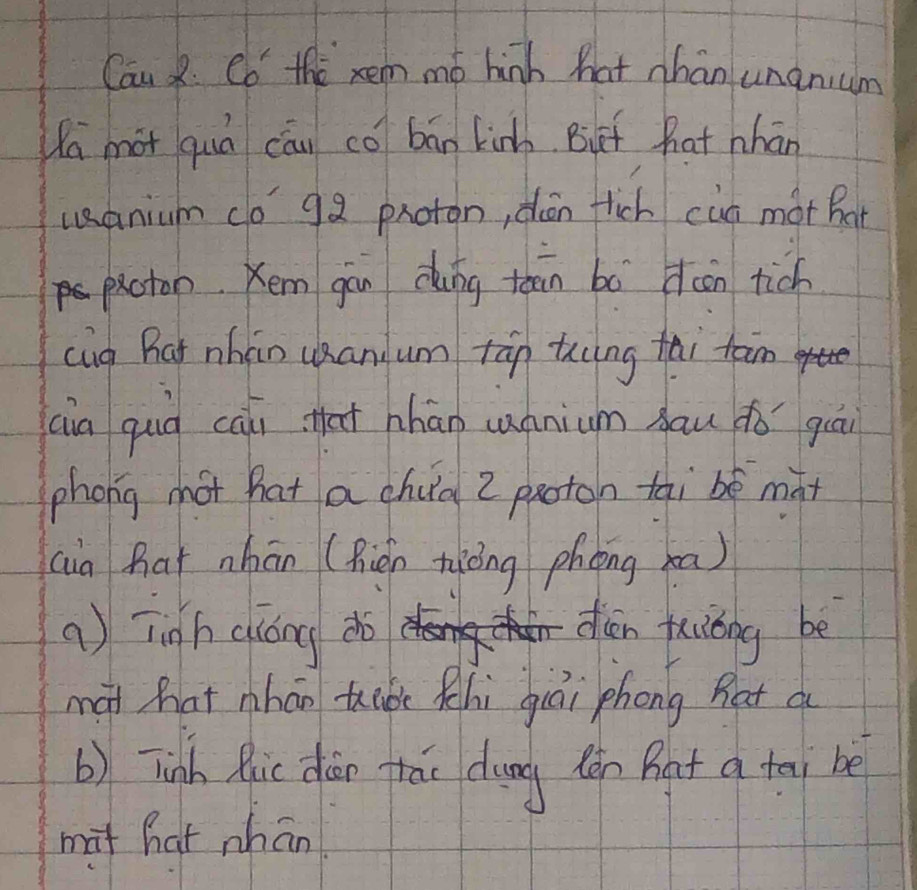 Câu 2. Có thể xem mô hình hạt nhân uranium
là một quả cầu có bán kính. Biết hạt nhân
uranium có 92 proton, điện tích của một hạt
pe proton. Xem gần đúng toàn bộ điện tích
của hạt nhân uranium tập trung tại tâm que
của quả cầu. Hạt nhân uranium sau đó giải
phóng một hạt α chứa 2 proton tại bề mặt
của hạt nhân (hiện tượng phóng xạ)
a) Tính cường độ động điện điện trường bề
mặt hạt nhân trước khi giải phóng hạt α
b) Tính lực điện tác dụng lên hạt α tại bề
mặt hạt nhân.